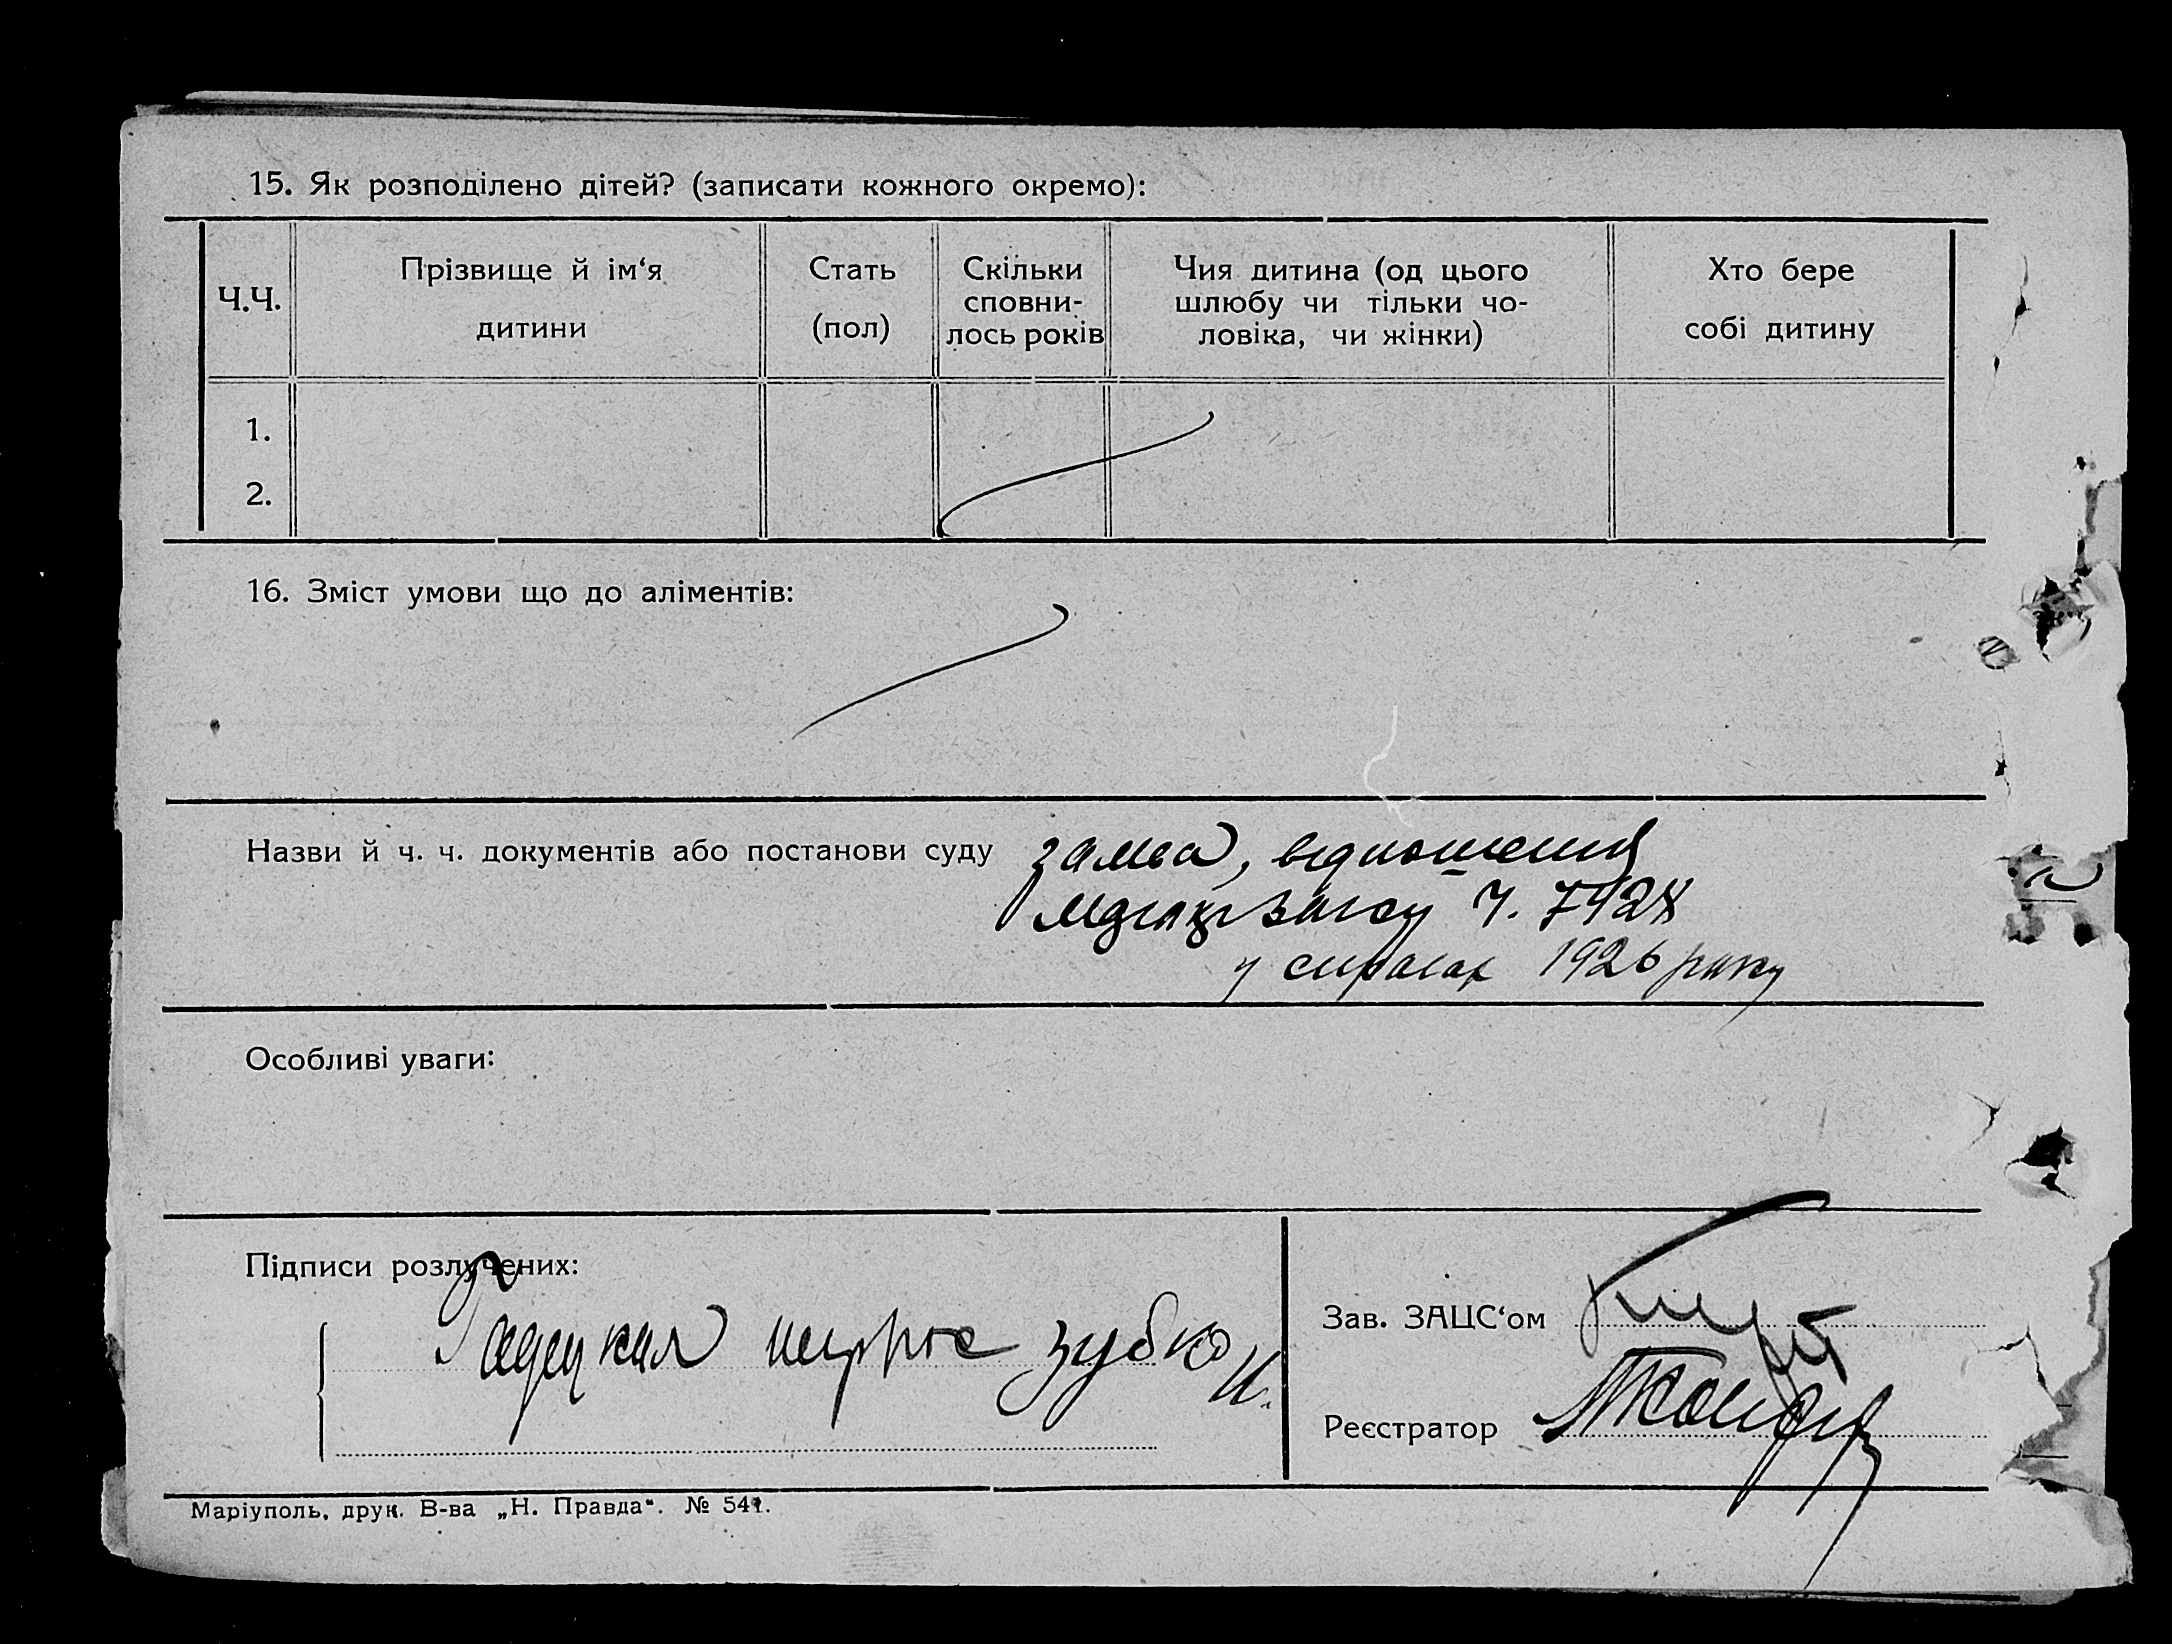 15. Як розподілено дітей? (записати кожного окремо):
Ч.Ч.
Прізвище й ім‘я
дитини
Стать
(пол)
Скільки
сповни-
лось років
Чия дитина (од цього
шлюбу чи тільки чо-
ловіка, чи жінки)
Хто бере
собі дитину
1.
2.
16. Зміст умови що до аліментів:
Назви й ч. ч. документів або постанови суду заява, відношення
Ч. 7428
у справах 1926 року
Особливі уваги:
Підписи розлучених:
Зубко И.
Зав. ЗАЦС‘ом
Реєстратор
Маріуполь, друк. В-ва „Н. Правда“. № 541.